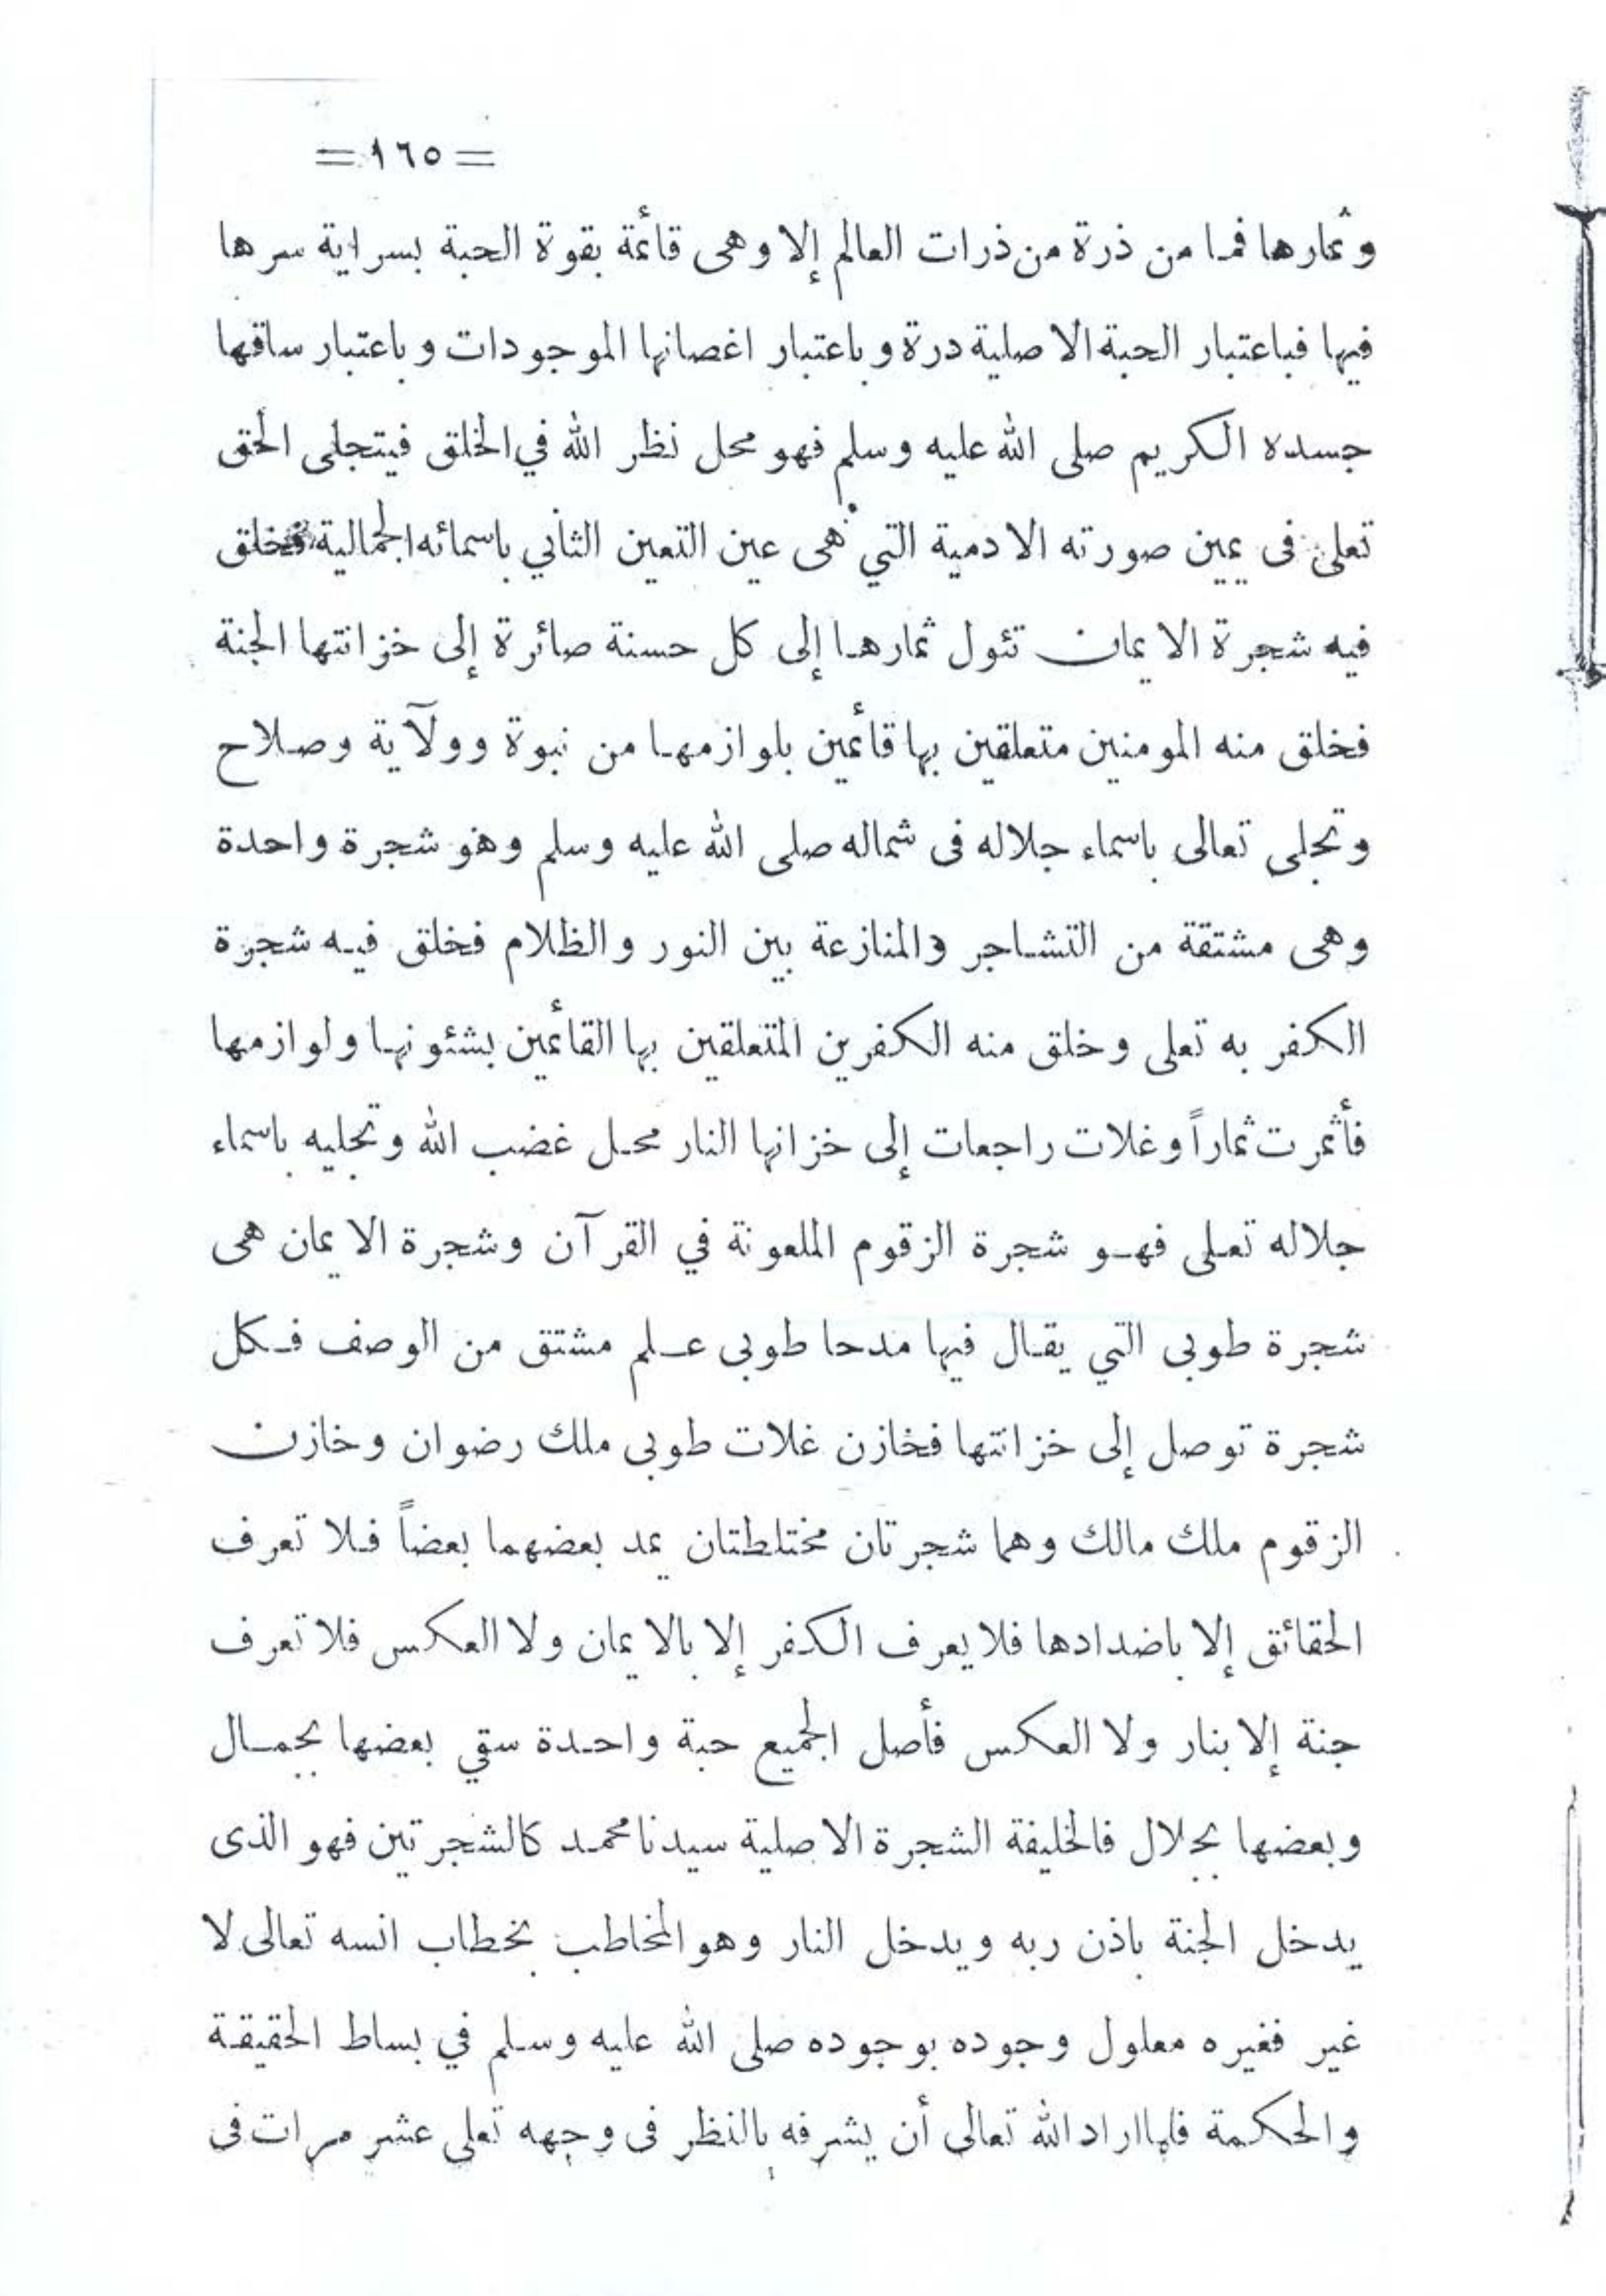 = ١٦٥ =
وثمارها فما من ذرة من ذرات العالم إلا وهى قائمة بقوة الحبة بسراية سرها
فيها فباعتبار الحبة الاصلية درة وباعتبار اغصانها الموجودات وباعتبار ساقها
جسده الكريم صلى الله عليه وسلم فهو محل نظر الله في الخلق فيتجلى الحق
تعلى فى يمين صورته الادمية التي هى عين التعين الثاني باسمائه الجمالية فخلق
فيه شجرة الايمان تئول ثمارها إلى كل حسنة صائرة إلى خزانتها الجنة
فخلق منه المومنين متعلقين بها قائمين بلوازمها من نبوة وولآية وصلاح
وتجلى تعالى باسماء جلاله فى شماله صلى الله عليه وسلم وهو شجرة واحدة
وهى مشتقة من التشاجر والمنازعة بين النور والظلام فخلق فيه شجرة
الكفر به تعلى وخلق منه الكفرين المتعلقين بها القائمين بشئونها ولوازمها
فأثمرت ثماراً وغلات راجعات إلى خزانها النار محل غضب الله وتجليه باسماء
جلاله تعلى فهو شجرة الزقوم الملعونة في القرآن وشجرة الايمان هى
شجرة طوبى التي يقال فيها مدحا طوبى علم مشتق من الوصف فكل
شجرة توصل إلى خزانتها فخازن غلات طوبى ملك رضوان وخازن
الزقوم ملك مالك وهما شجرتان مختلطتان يمد بعضهما بعضاً فلا تعرف
الحقائق إلا باضدادها فلا يعرف الكفر إلا بالايمان ولا العكس فلا تعرف
جنة إلا بنار ولا العكس فأصل الجميع حبة واحدة سقي بعضها بجمال
وبعضها بجلال فالخليفة الشجرة الاصلية سيدنا محمد كالشجرتين فهو الذى
يدخل الجنة باذن ربه ويدخل النار وهو المخاطب بخطاب انسه تعالى لا
غير فغيره معلول وجوده بوجوده صلى الله عليه وسلم في بساط الحقيقة
والحكمة فلما اراد الله تعالى أن يشرفه بالنظر فى وجهه تعلى عشر مرات فى